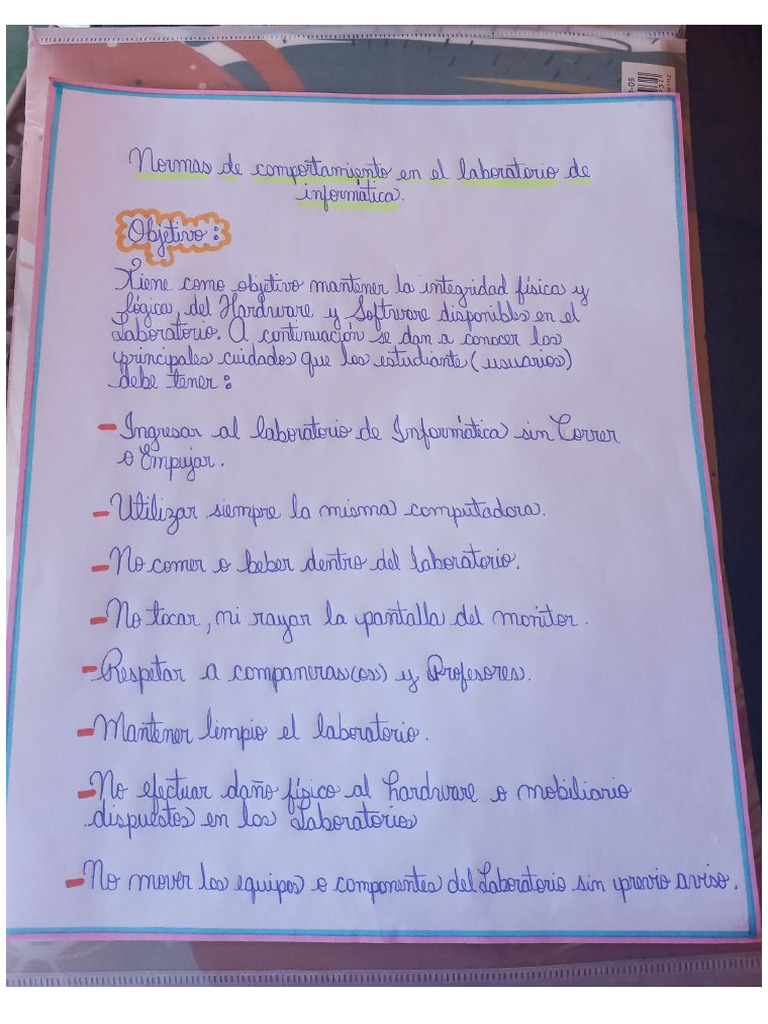 Normas de comportamiento en el laboratorio de
informática.
Objetivo:
Tiene como objetivo mantener la integridad física y
lógica, del Hardware y Software disponibles en el
Laboratorio. A continuación se dan a conocer los
principales cuidados que los estudiante (usuarios)
debe tener:
- Ingresar al laboratorio de Informática sin Correr
o Empujar.
- Utilizar siempre la misma computadora.
- No comer o beber dentro del laboratorio.
- No tocar, ni rayar la pantalla del monitor.
- Respetar a companeras(os) y Profesores.
- Mantener limpio el laboratorio.
- No efectuar daño físico al hardware o mobiliario
dispuestos en los Laboratorios
- No mover los equipos o componentes del Laboratorio sin previo aviso.